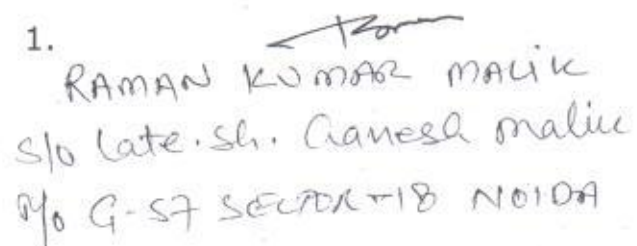 1. Raman
RAMAN KUMAR MALIK
S/o Late. Sh. Ganesh Malik
R/o G-57 SECTOR-18 NOIDA